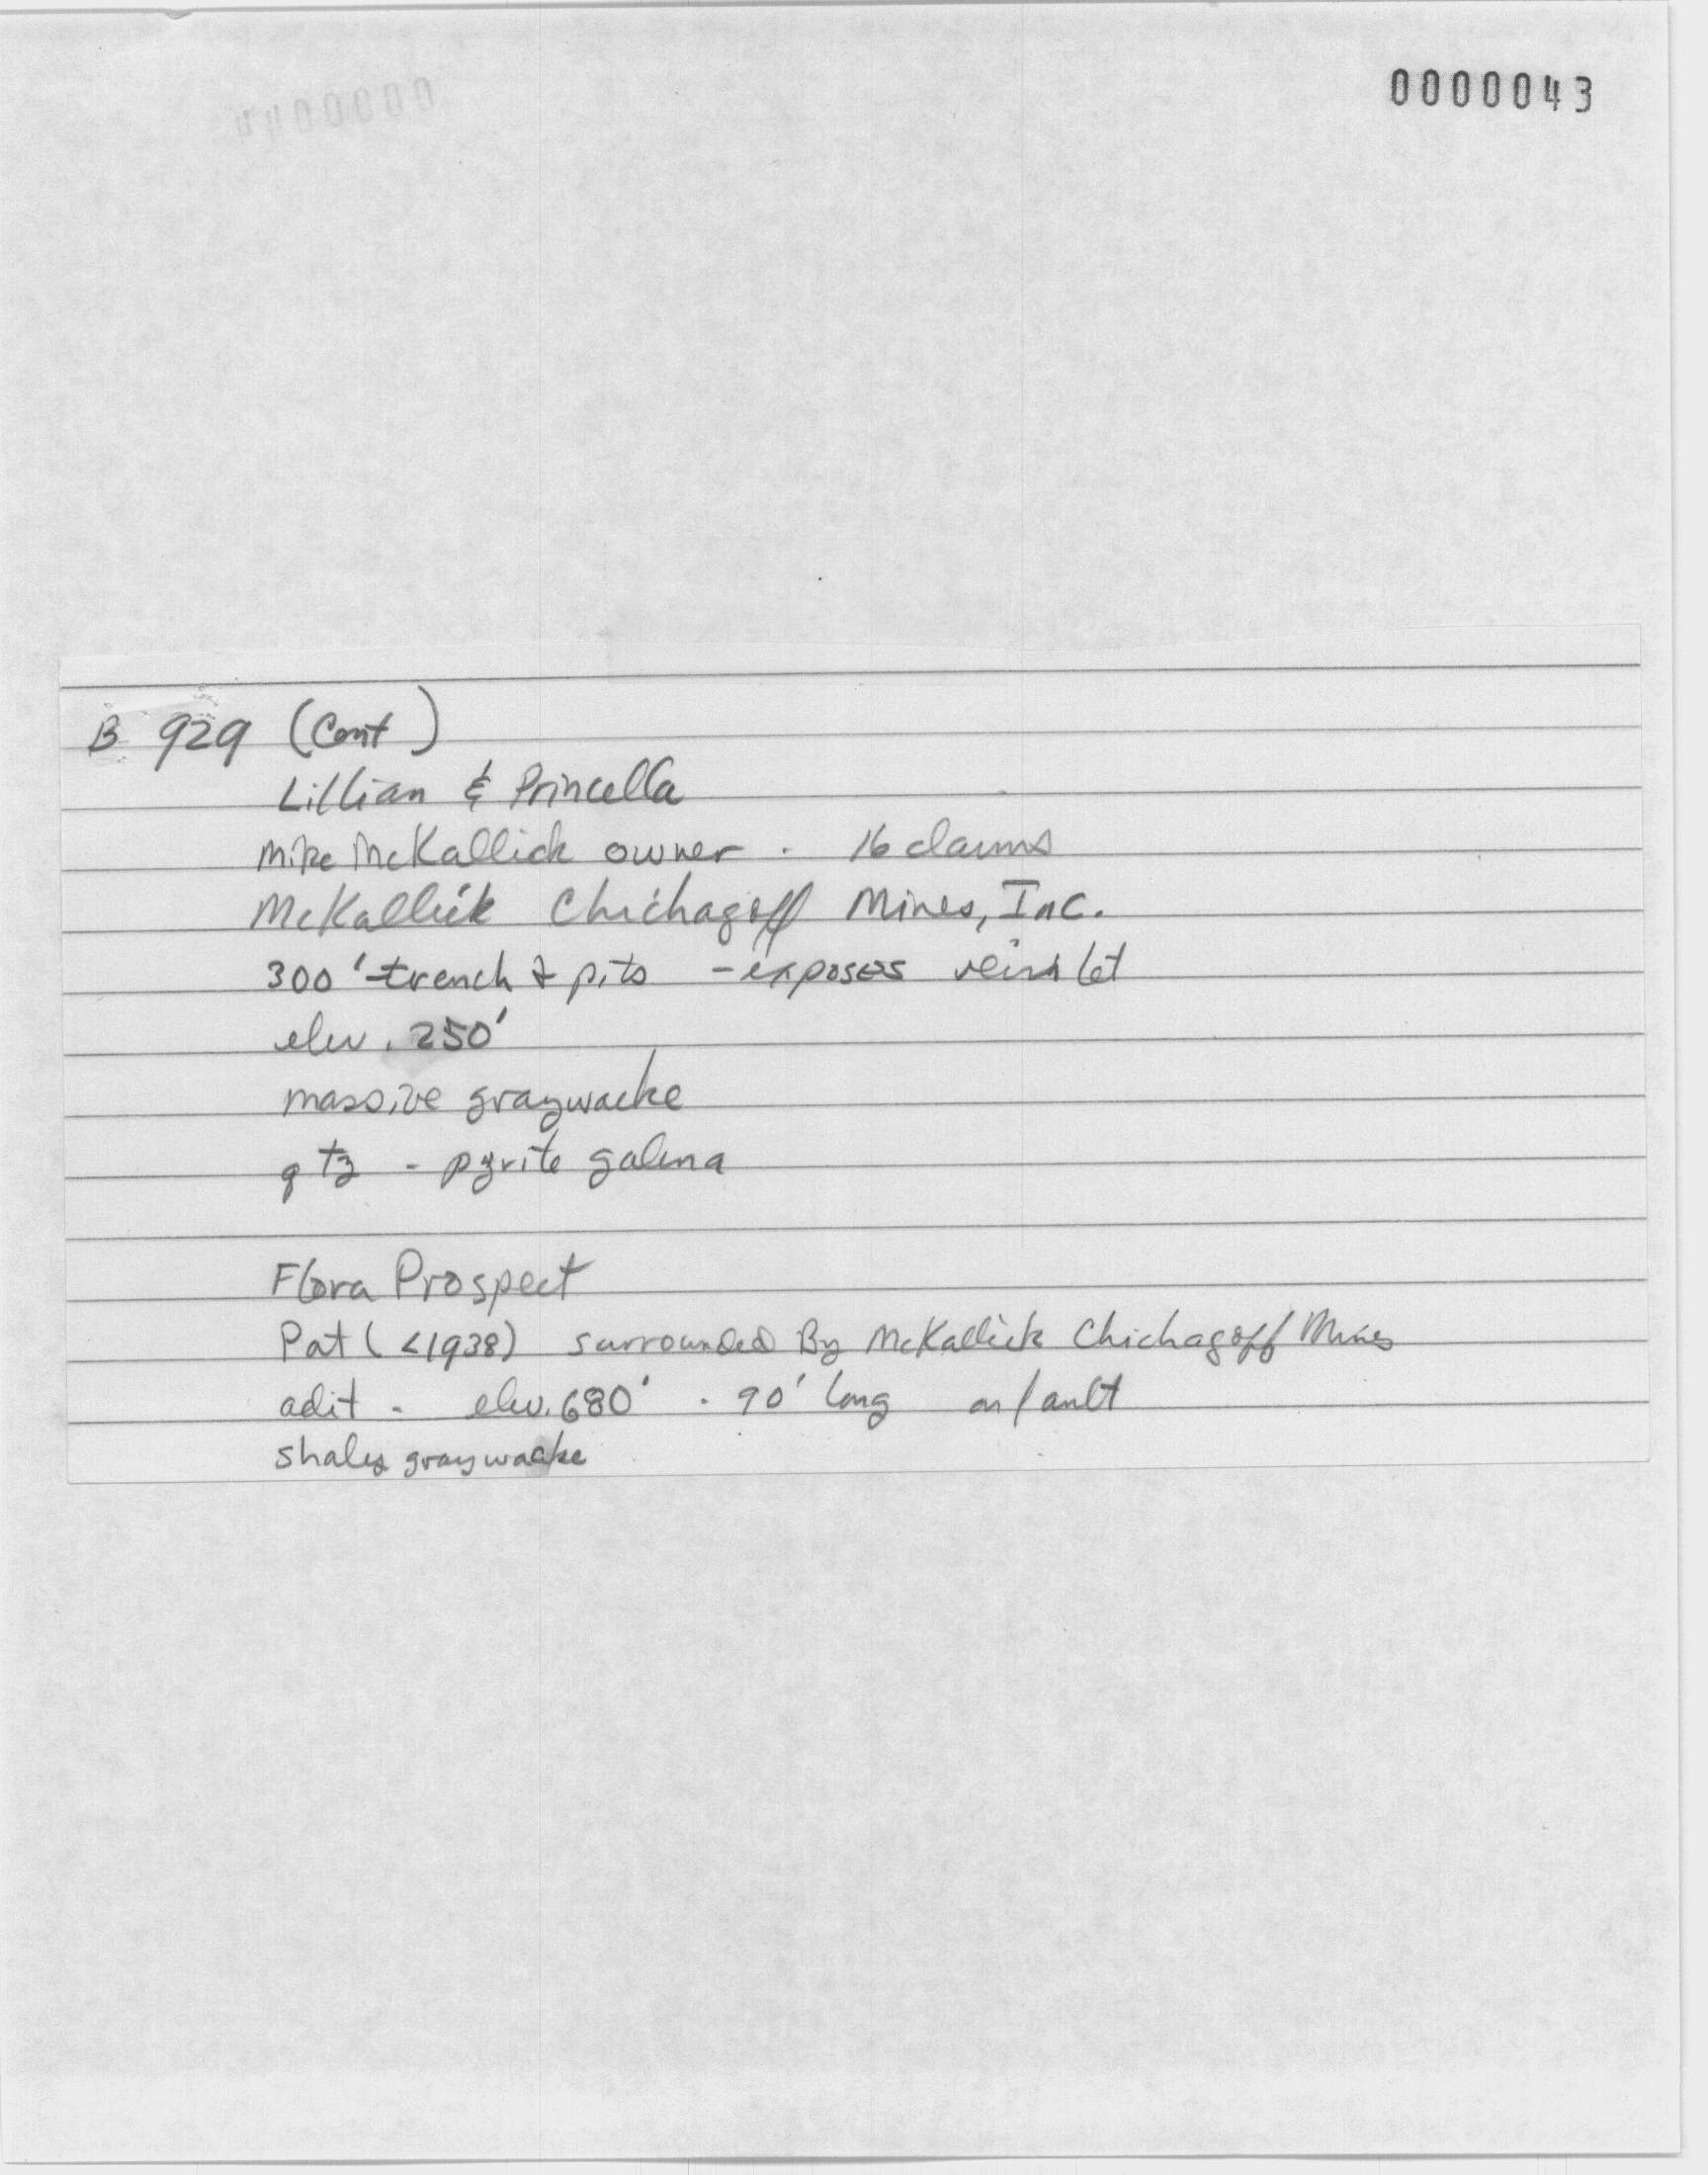 0000043
B 929 (Cont)
Lillian & Princella
Mike McKallick owner . 16 claims
McKallick Chichagoff Mines, Inc.
300' trench & pits - exposes veinlet
elev. 250'
massive graywacke
qtz - pyrite galena
Flora Prospect
Pat (<1938) surrounded By McKallick Chichagoff Mines
adit - elev. 680' . 90' long on fault
shaley graywacke